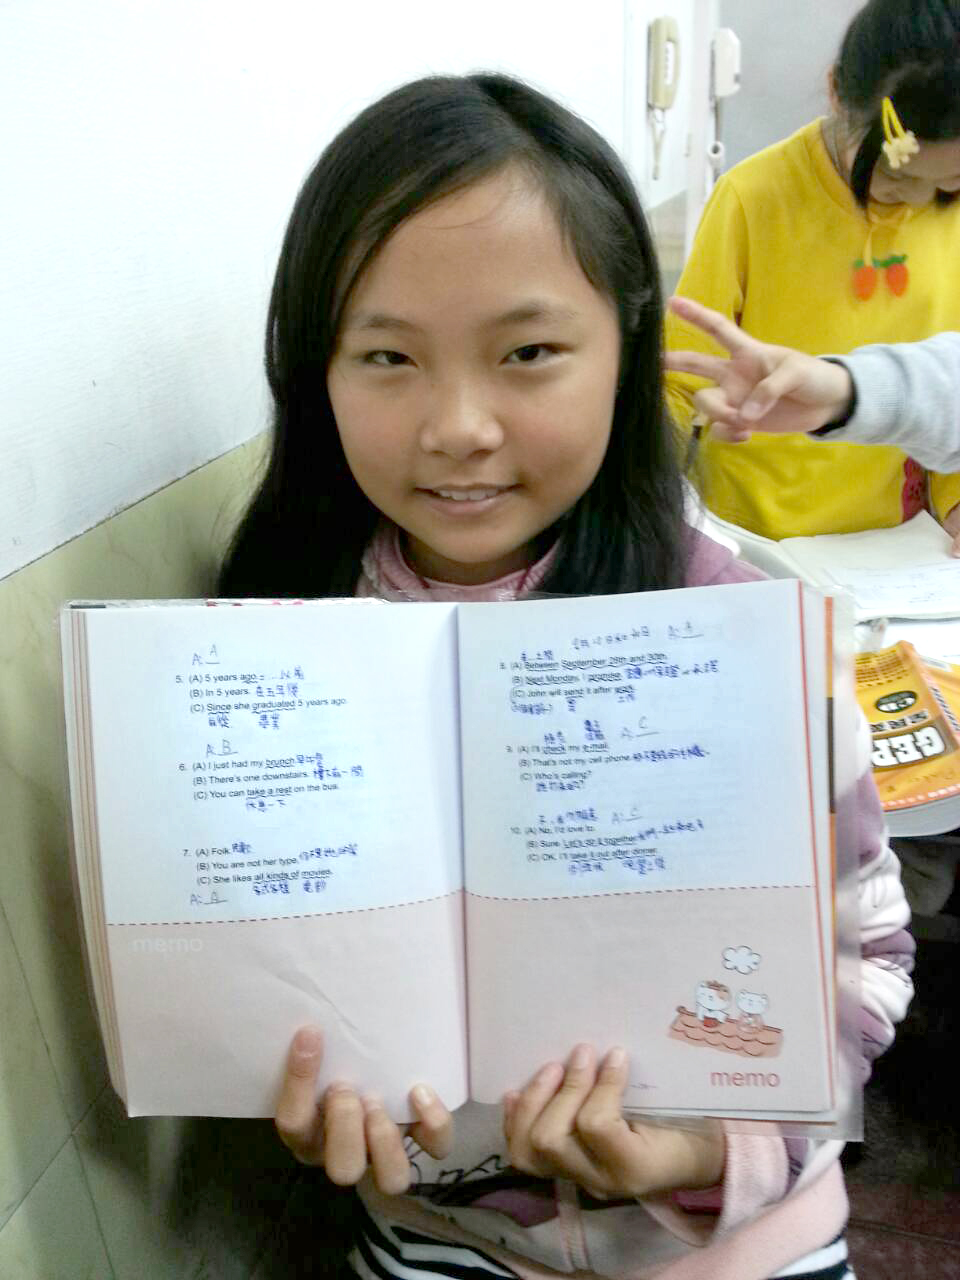 A: A
5. (A) 5 years ago = ...以前
(B) In 5 years. 在五年後
(C) Since she graduated 5 years ago.
自從 畢業
A: B
6. (A) I just had my brunch 早午餐
(B) There's one downstairs.
(C) You can take a rest on the bus.
休息一下
7. (A) Folk.
(B) You are not her type.
(C) She likes all kinds of movies.
各式各種 電影
A: A
memo
A: A
8. (A) Between September 28th and 30th.
(B) Next Monday, I promise.
(C) John will send it after work.
工作
A: C
9. (A) I'll check my e-mail.
(B) That's not my cell phone.
(C) Who's calling?
A: C
10. (A) No, I'd love to.
(B) Sure. Let's do it together.
(C) OK, I'll take it out after dinner.
晚餐之後
memo
GEPT